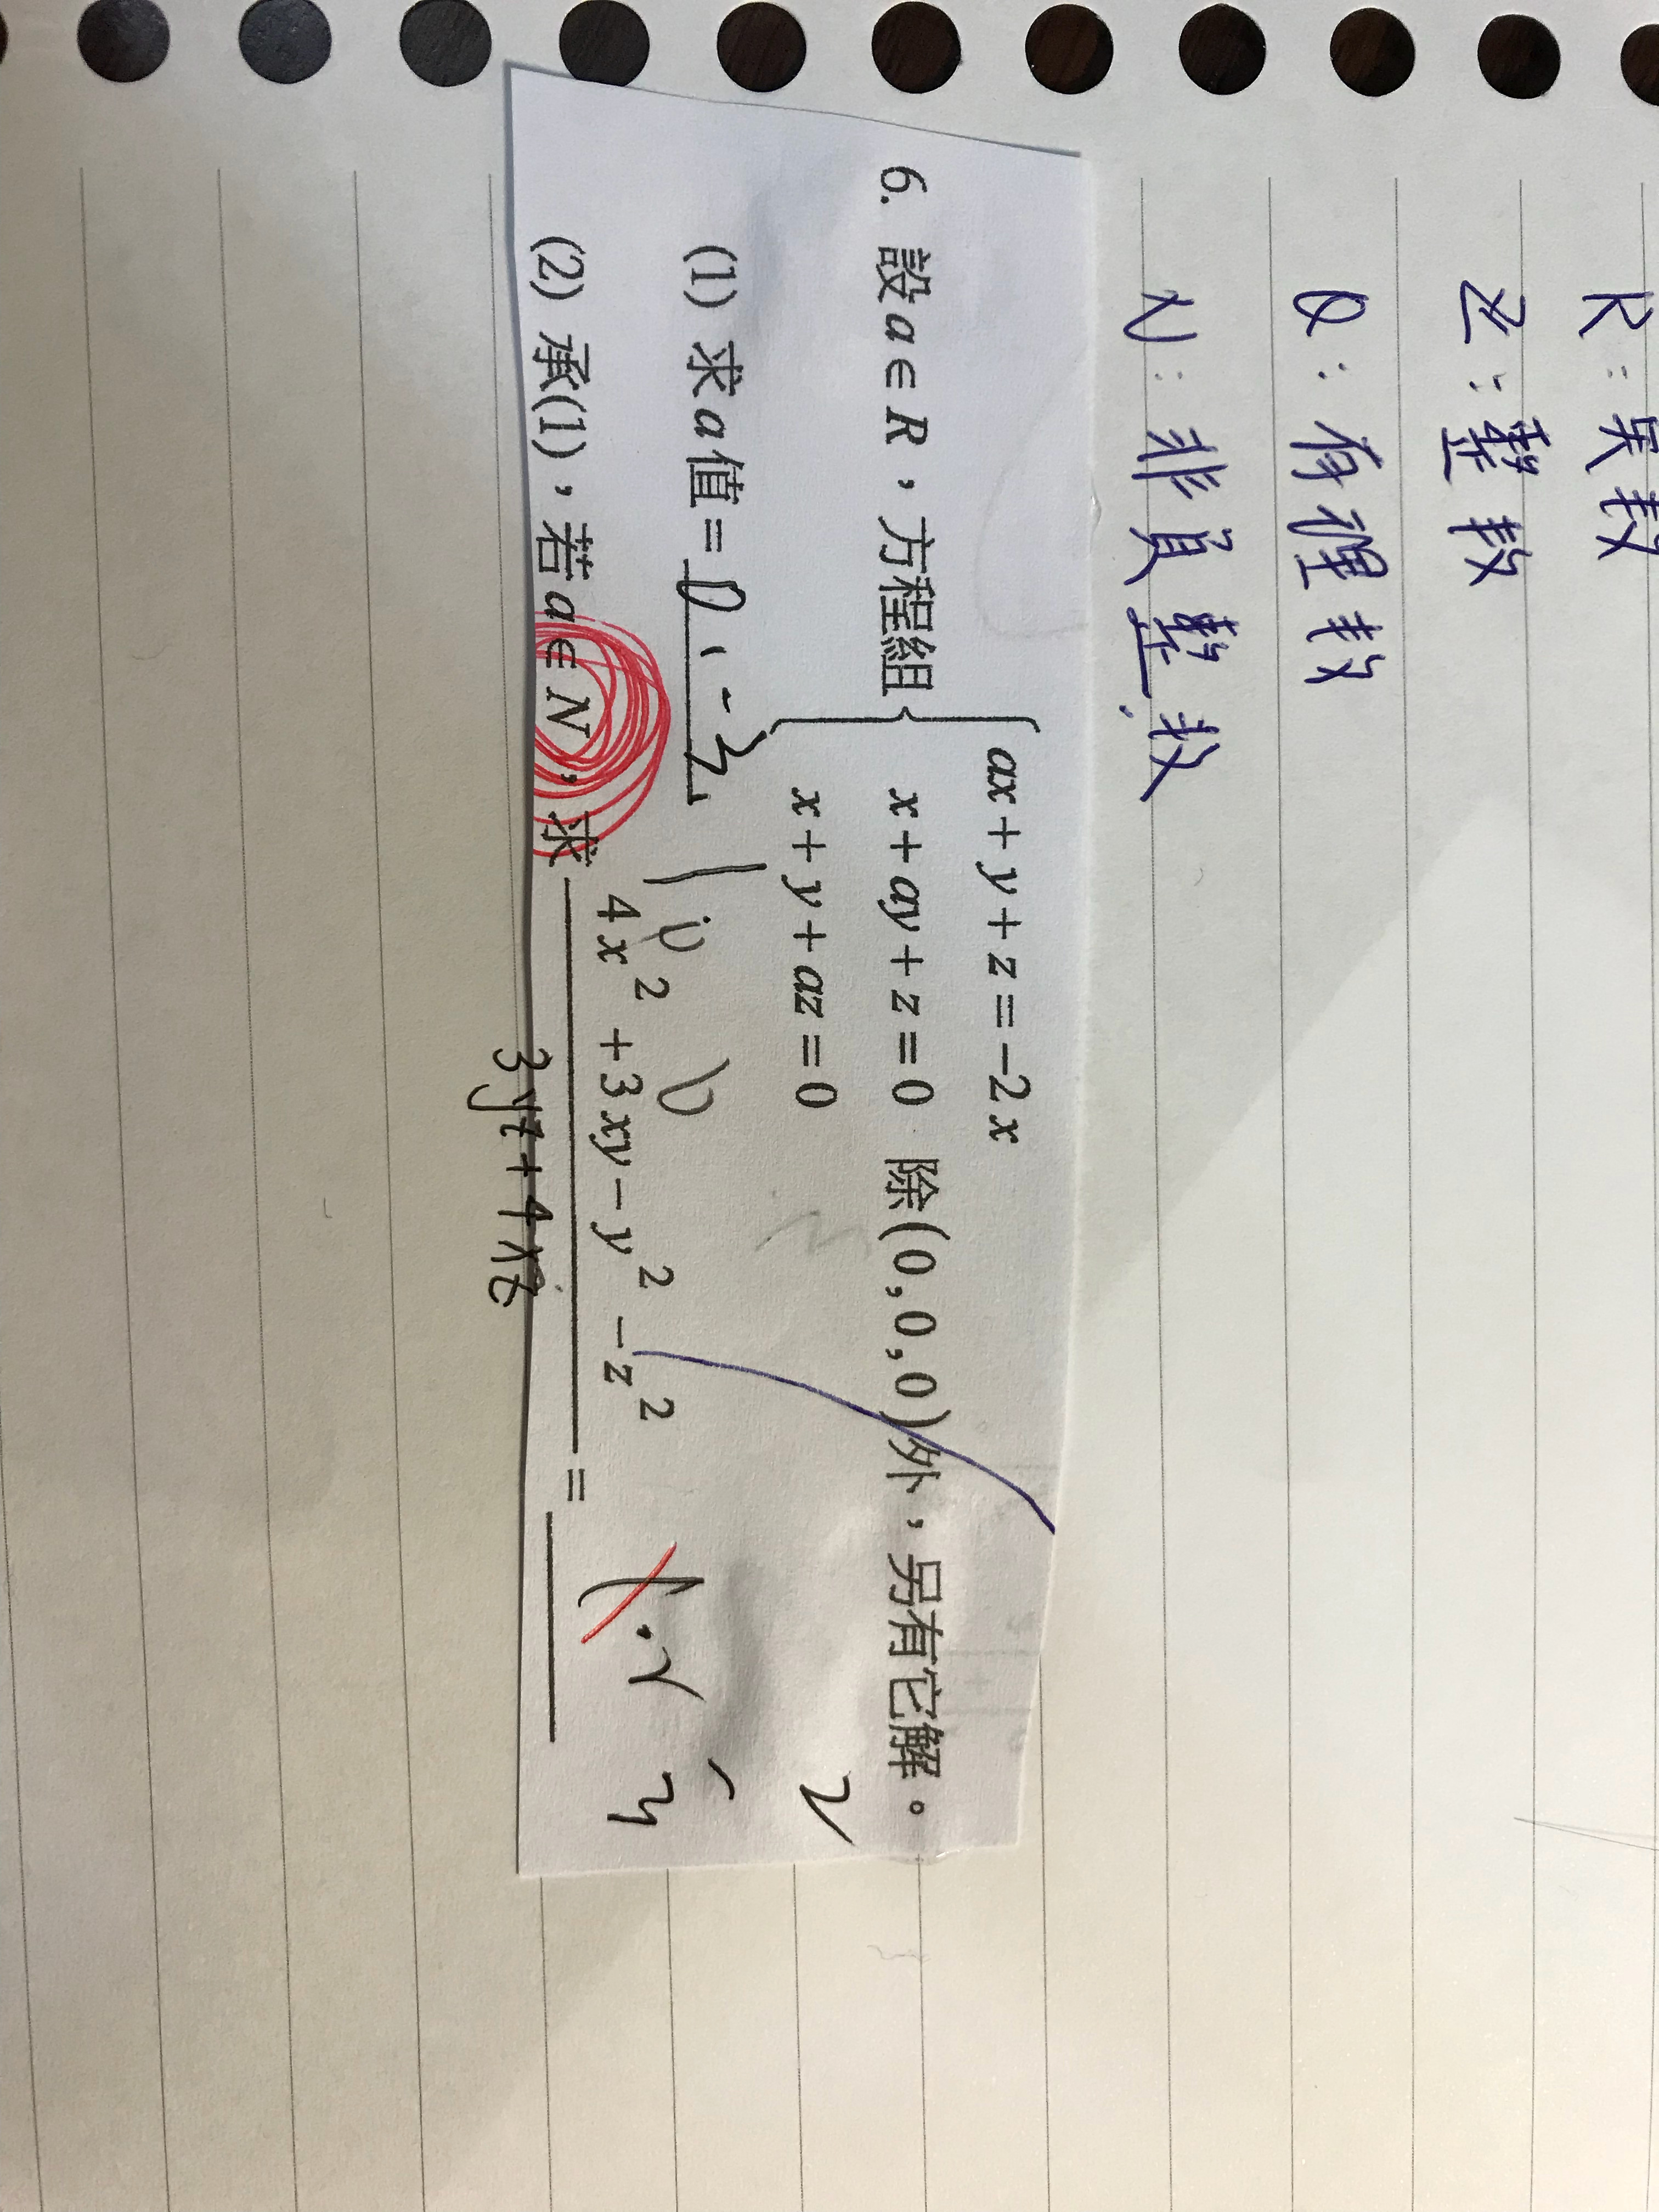 R：実數
Z：整數
Q：有理數
N：非負整數
6. 設a∈R，方程組
ax+y+z=-2x
x+ay+z=0 除(0,0,0)外，另有它解。
x+y+az=0
(1) 求a值= 0、-3、1
(2) 承(1)，若a∈N，求
4x²+3xy-y²-z²
3yz+4xz
=
2
3